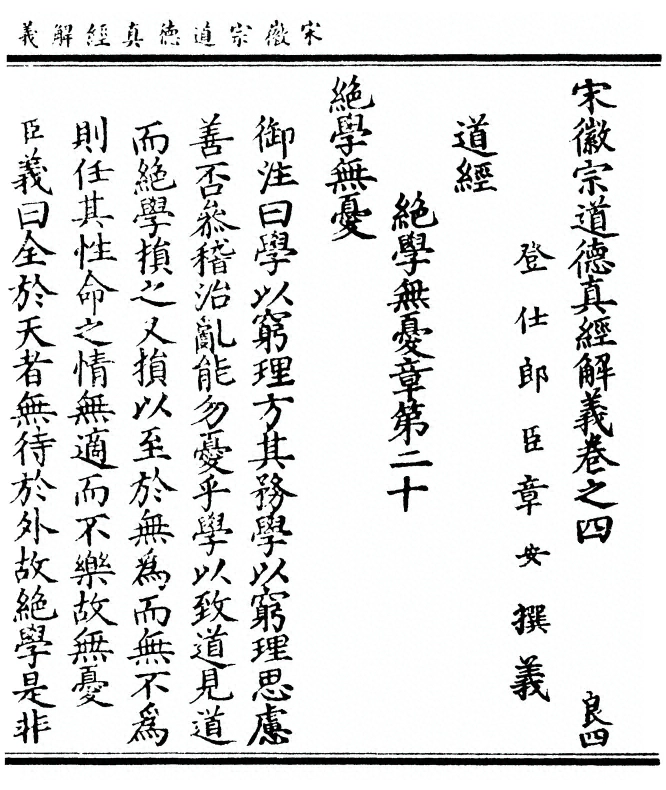 宋徽宗道德真經解義
宋徽宗道德真經解義卷之四 良四
登仕郎臣章安撰義
道經
絕學無憂章第二十
絕學無憂
御注曰學以窮理方其務學以窮理思慮
善否叅稽治亂能勿憂乎學以致道見道
而絕學損之又損以至於無為而無不為
則任其性命之情無適而不樂故無憂
臣義曰全於天者無待於外故絕學是非